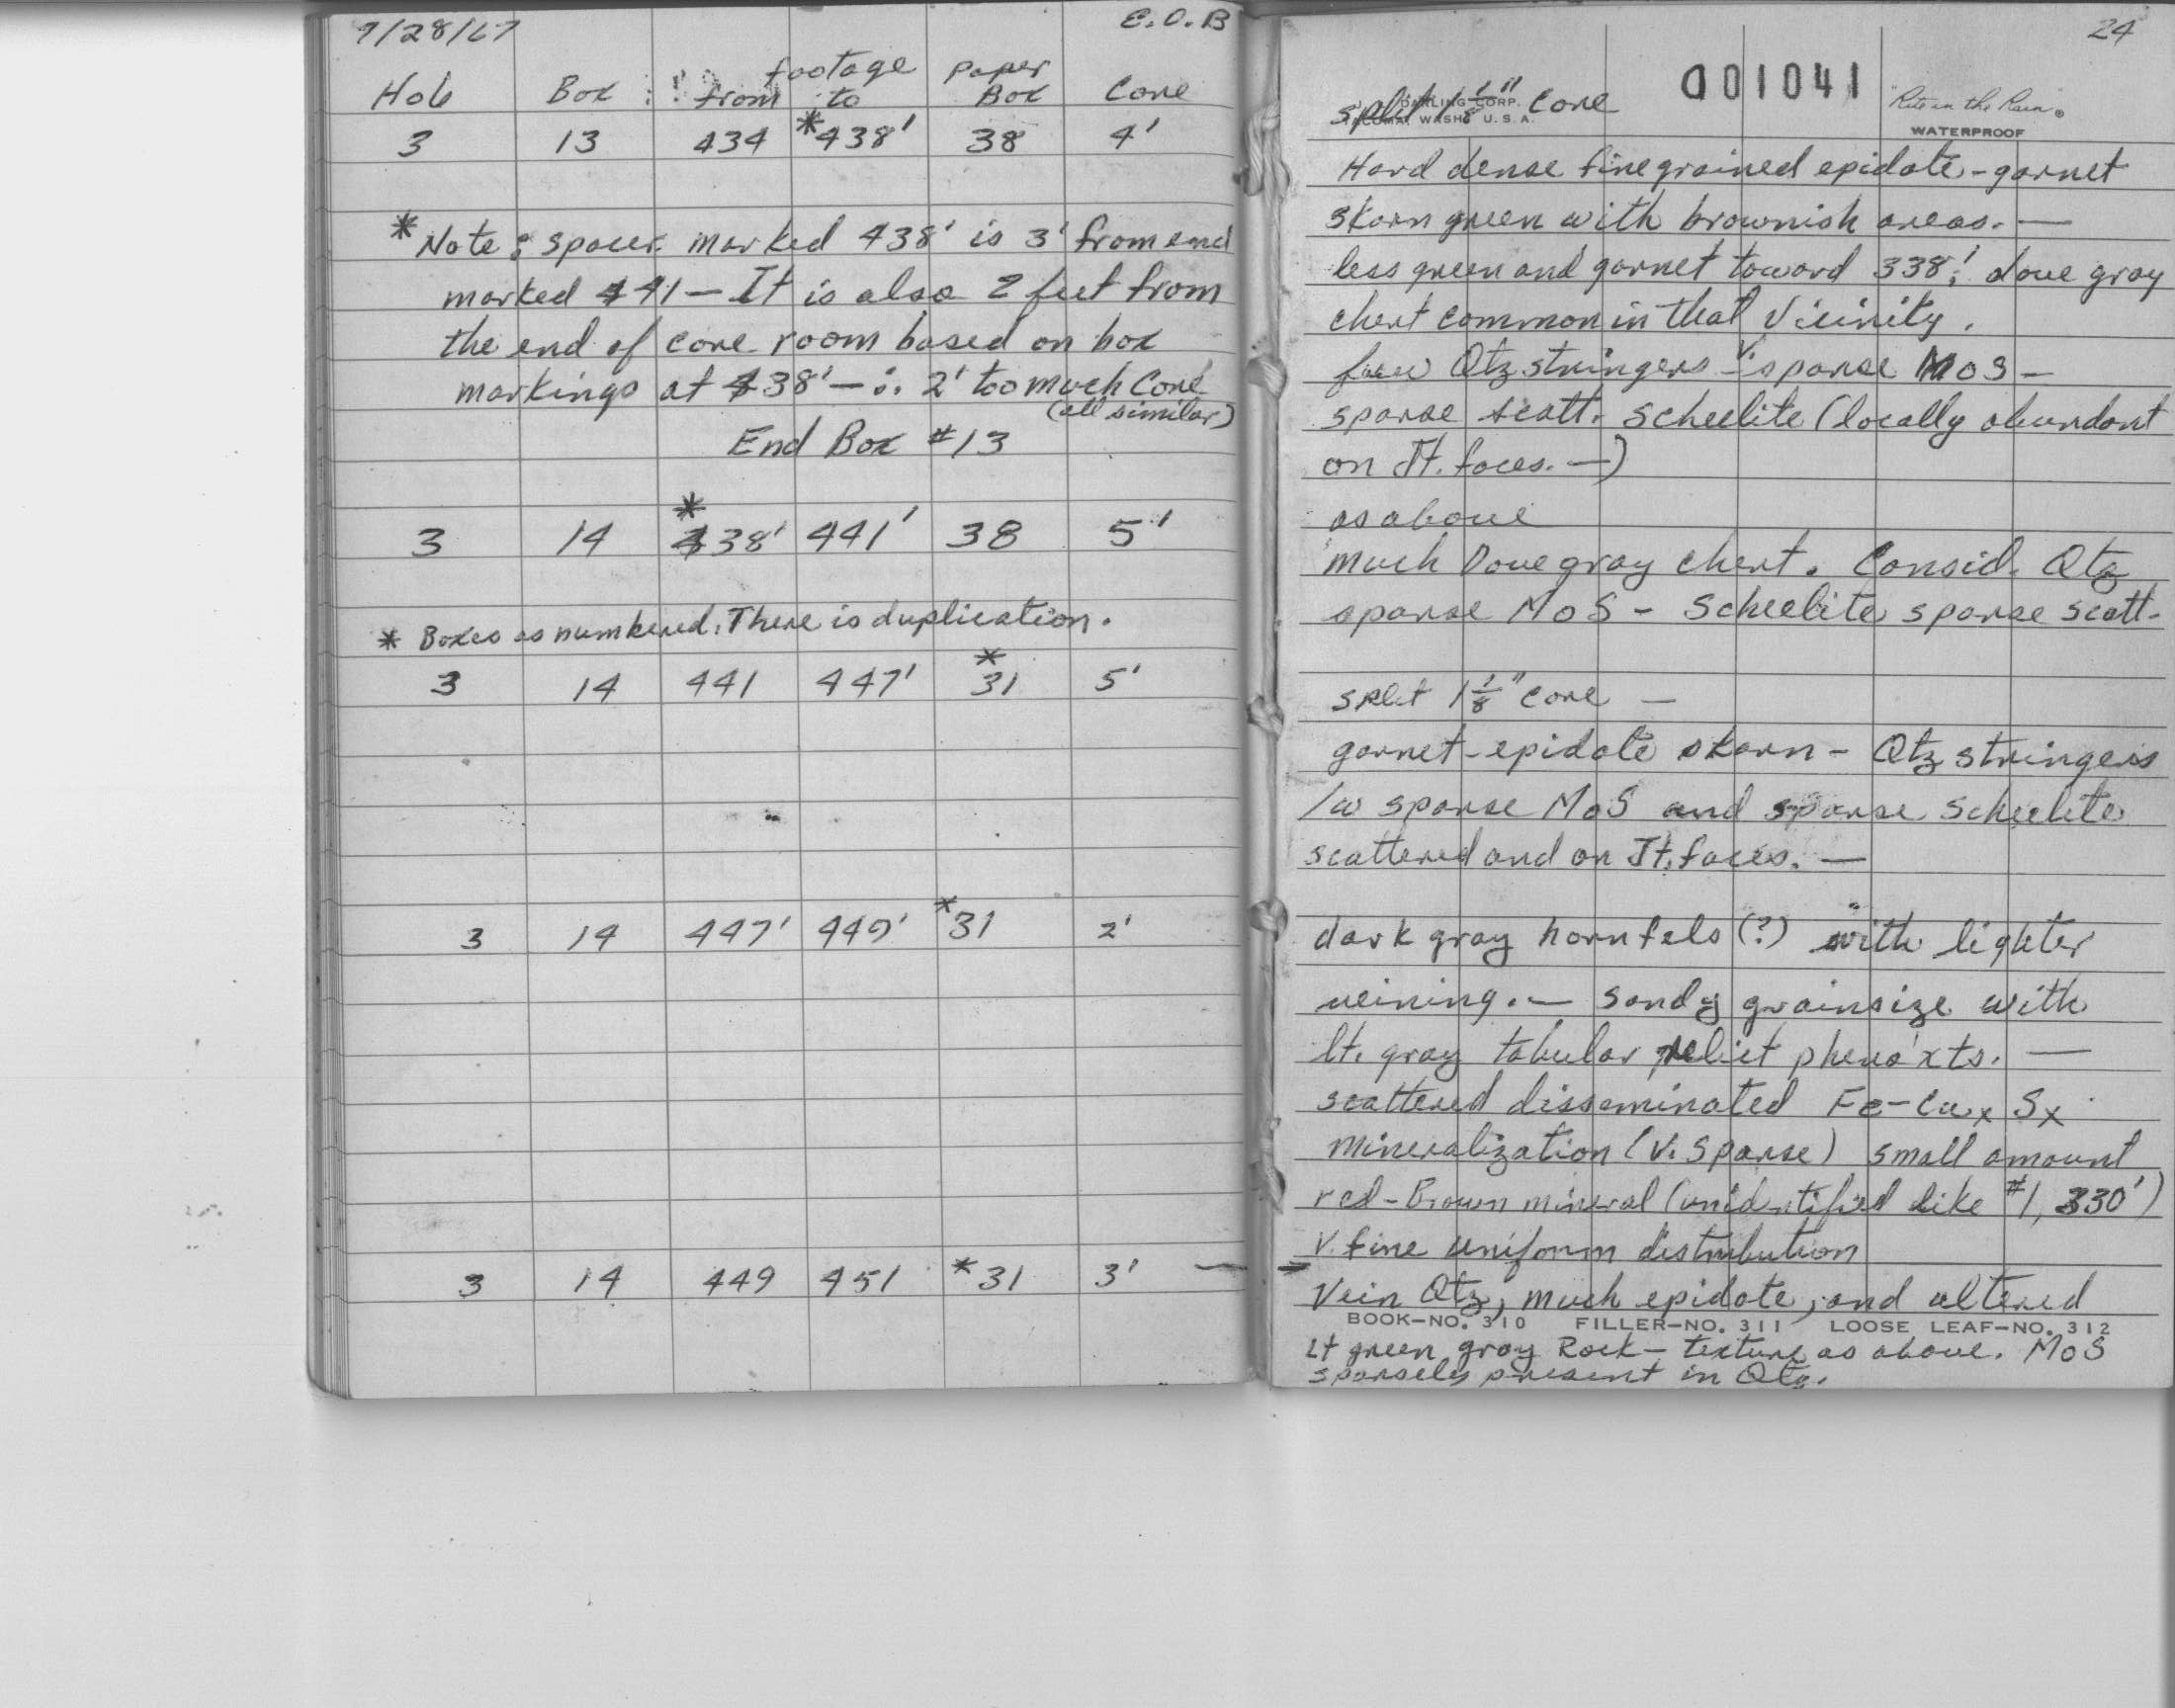 9/28/67 E.O.B
footage paper
Hole Box from to Box Core
3 13 434 *438' 38 4'
*Note: spacer marked 438' is 3' from end
marked 441 — It is also 2 feet from
the end of core room based on box
markings at 438' — ∴ 2' too much core
(all similar)
End Box #13
*
3 14 438' 441' 38 5'
* Boxes as numbered. There is duplication.
*
3 14 441 447' 31 5'
3 14 447' 449' *31 2'
3 14 449 451 *31 3' —
24
001041
"Rite in the Rain"®
WATERPROOF
J. L. DARLING CORP.
TACOMA, WASH. U.S.A.
split 1 1/8" core
Hard dense fine grained epidote-garnet
skarn green with brownish areas. —
less green and garnet toward 338'; dove gray
chert common in that vicinity.
few Qtz stringers - v. sparse MoS -
sparse scatt. scheelite (locally abundant
on Jt. faces. —)
as above
much Dove gray chert. Consid. Qtz
sparse MoS - Scheelite sparse scatt.
split 1 1/8" core —
garnet-epidote skarn - Qtz stringers
/w sparse MoS and sparse scheelite
scattered and on Jt. faces. —
dark gray hornfels (?) with lighter
veining. — sandy grainsize with
lt. gray tabular relict pheno'xts. —
scattered disseminated Fe-Cux Sx
mineralization (v. sparse) small amount
red-Brown mineral (unidentified like #1, 330')
v. fine uniform distribution
Vein Qtz, much epidote, and altered
BOOK—NO. 310 FILLER—NO. 311 LOOSE LEAF—NO. 312
Lt green gray Rock - texture as above. MoS
sparsely present in Qtz.